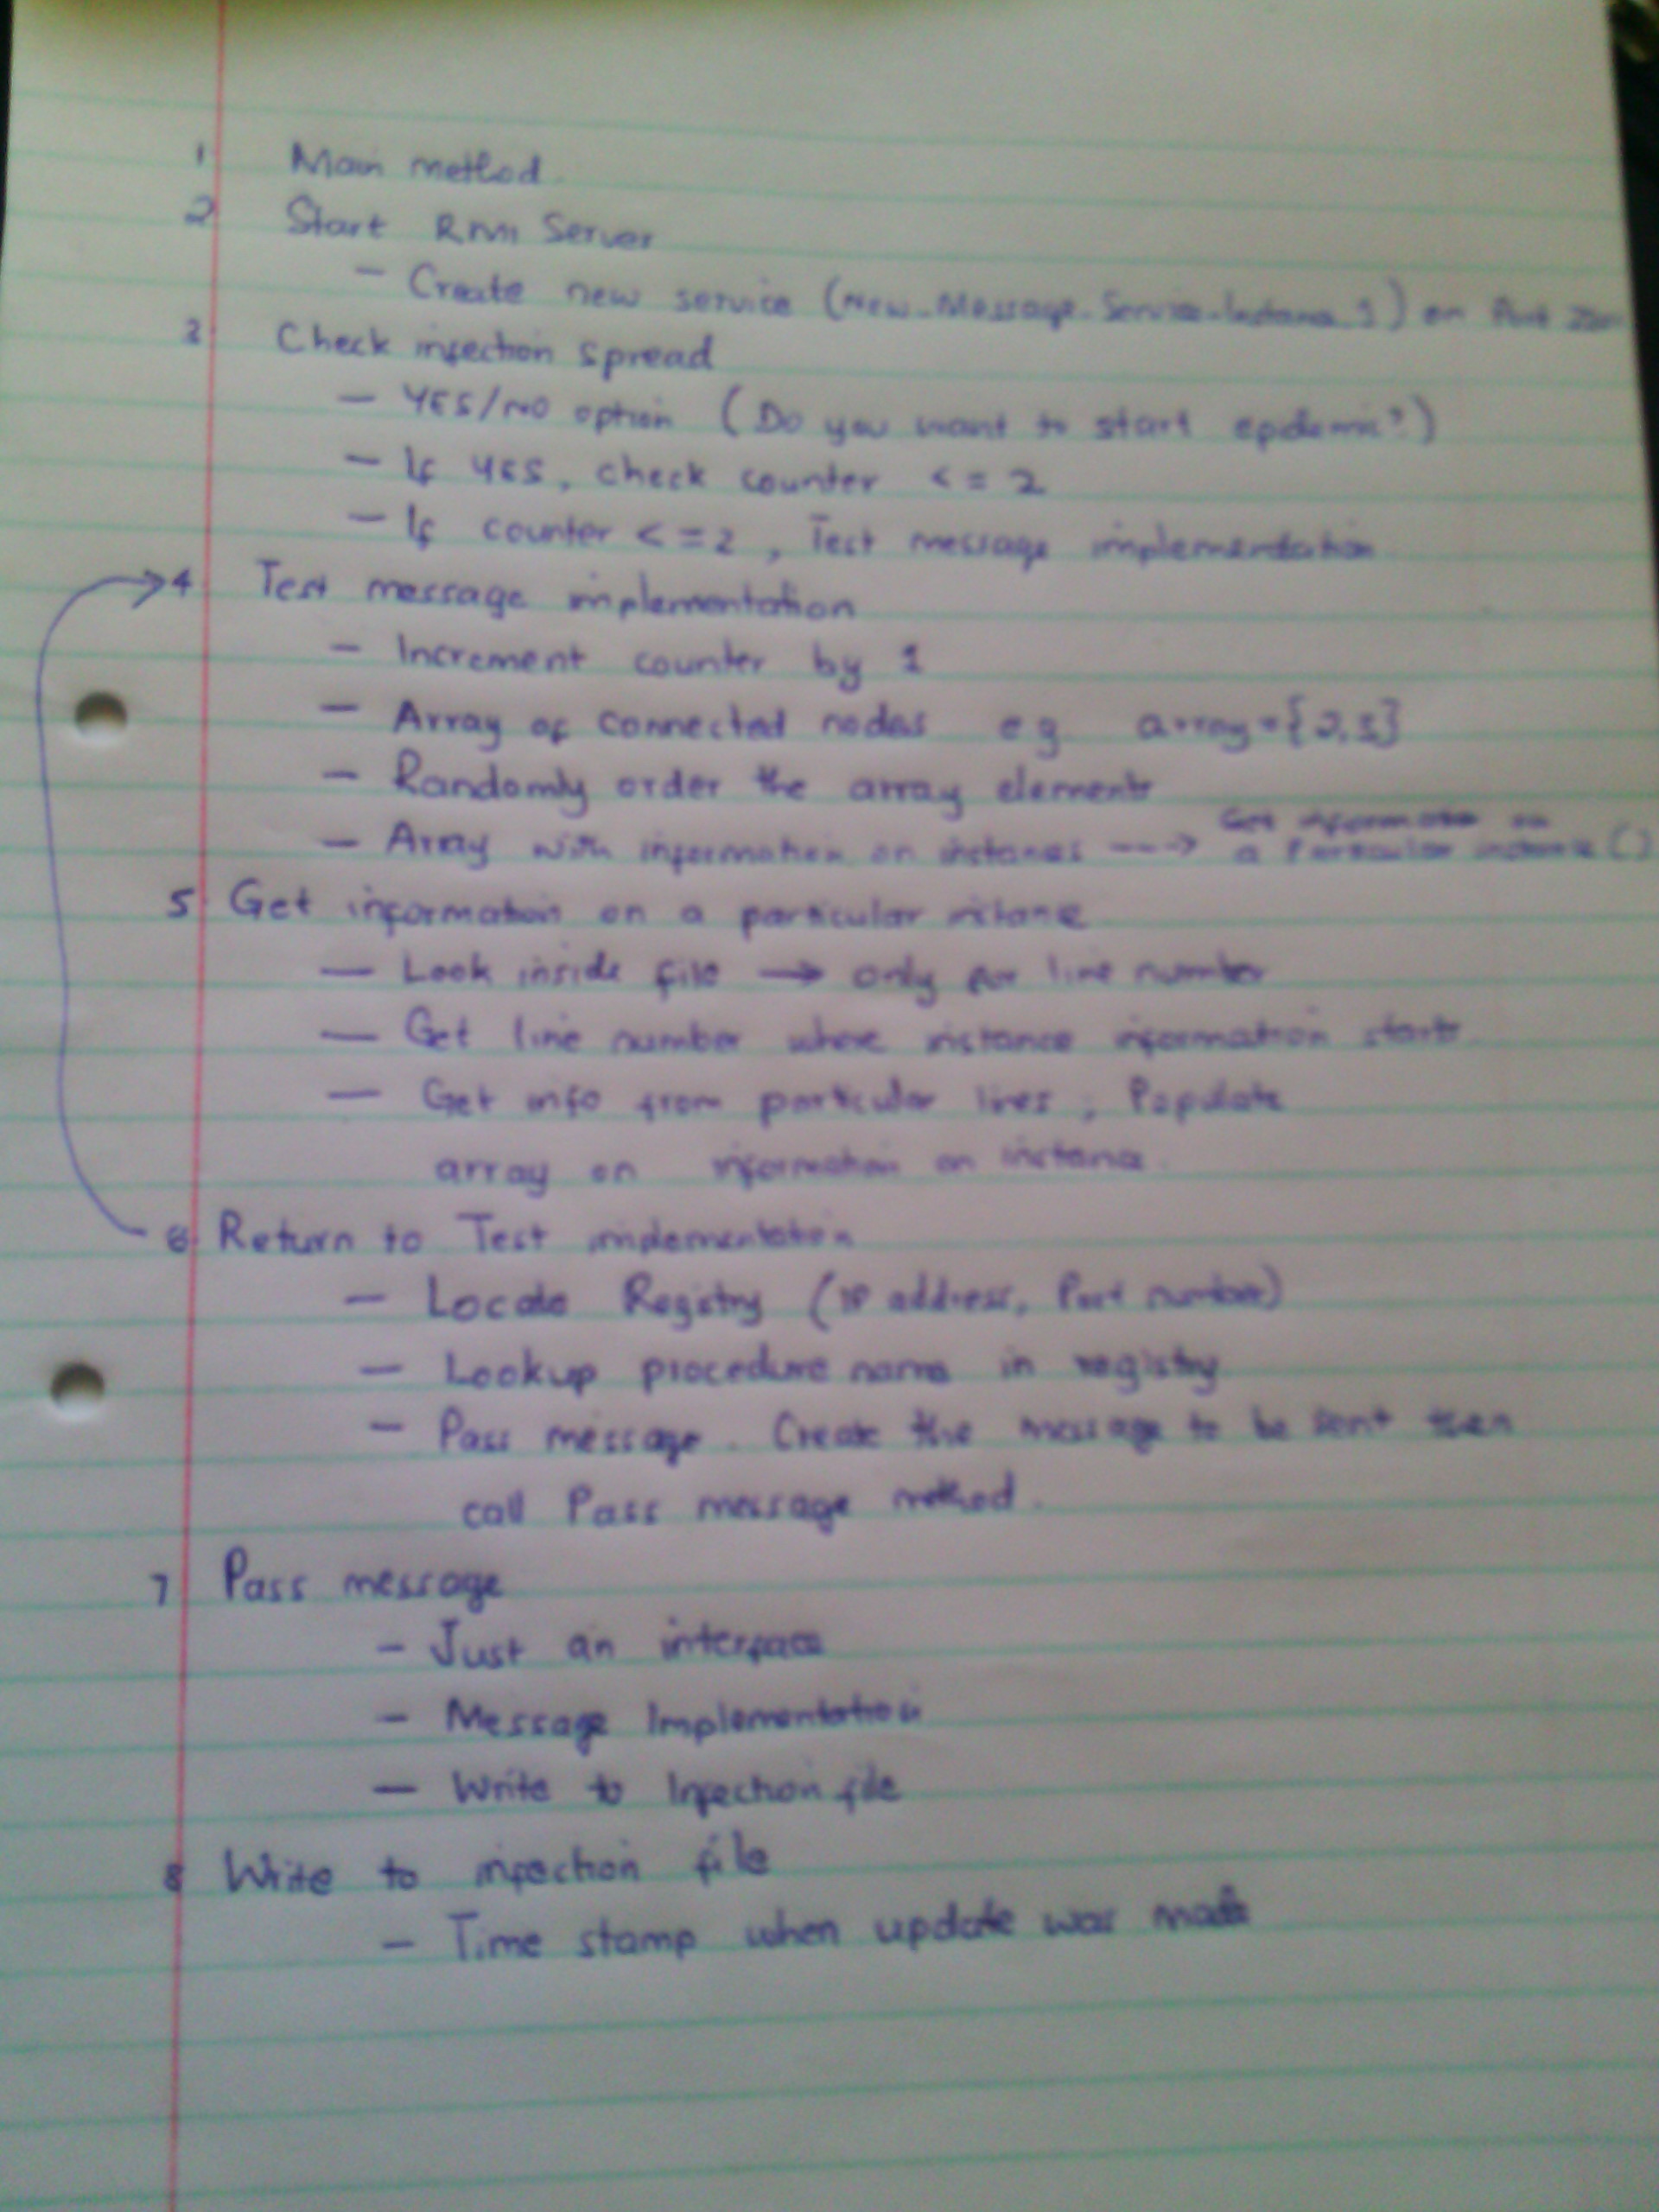 1 Main method.
2 Start RMI Server
- Create new service (New_Message_Service_Instance_1) on Port
3 Check infection spread
- YES/NO option (Do you want to start epidemic?)
- If YES, check counter <= 2
- If counter <= 2, Test message implementation
4 Test message implementation
- Increment counter by 1
- Array of connected nodes eg array={2,3}
- Randomly order the array elements
- Array with information on instances ---> Get information on
a Particular instance ()
5 Get information on a particular instance
- Look inside file → only for line number
- Get line number where instance information starts
- Get info from particular lines, Populate
array on information on instance.
6 Return to Test implementation
- Locate Registry (IP address, Port number)
- Lookup procedure name in registry
- Pass message. Create the message to be sent then
call Pass message method.
7 Pass message
- Just an interface
- Message Implementation
- Write to Infection file
8 Write to infection file
- Time stamp when update was made